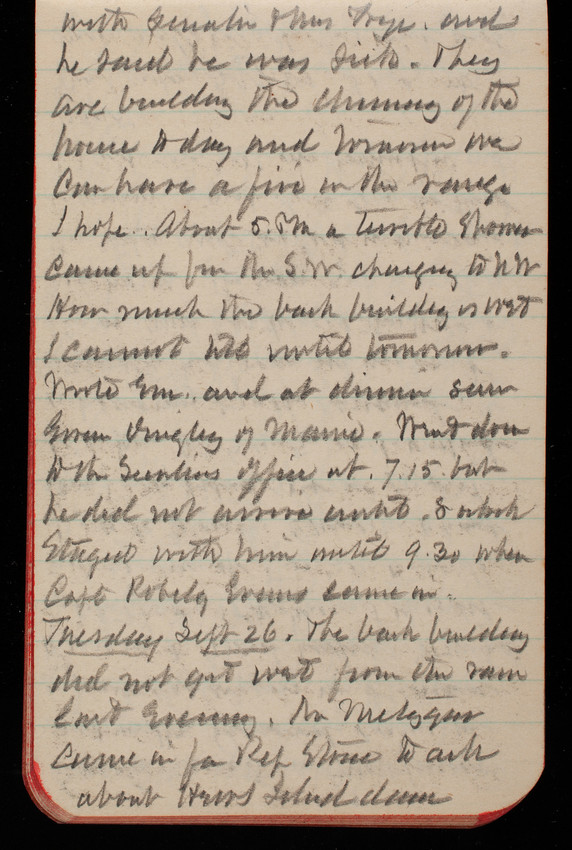 with Senator & Mrs Frye. and
he said he was sick. They
are building the chimney of the
house today and tomorrow we
can have a fire in the range
I hope. About 5. PM a terrible shower
came up from the S.W. changing to NW
How much the back building is wet
I cannot tell until tomorrow.
Wrote Em. and at dinner saw
Gover Dingley of Maine. Went down
to the Secretaries office at. 7.15 but
he did not arrive until. 8 oclock
Stayed with him until 9.30 when
Capt Robely Evans came in.
Tuesday Sept 26. The back building
did not get wet from the rain
last evening. Mr Metzgar
came in for Rep Stone to ask
about Island dam